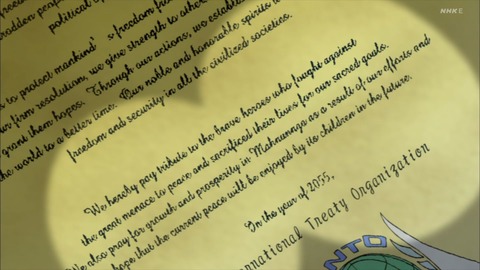 NHK E
political
to protect mankind's freedom fr
ur firm resolution, we give strength to other
grant them hopes. Through our actions, we establi
the world to a better time. Our noble and honorable spirits
freedom and security in all the civilized societies.
We hereby pay tribute to the brave heroes who fought against
the great menace to peace and sacrificed their lives for our sacred goals.
We also pray for growth and prosperity in Mahnumaga as a result of our efforts and
hope that the current peace will be enjoyed by its children in the future.
In the year of 2055,
ernational Treaty Organization
NTO